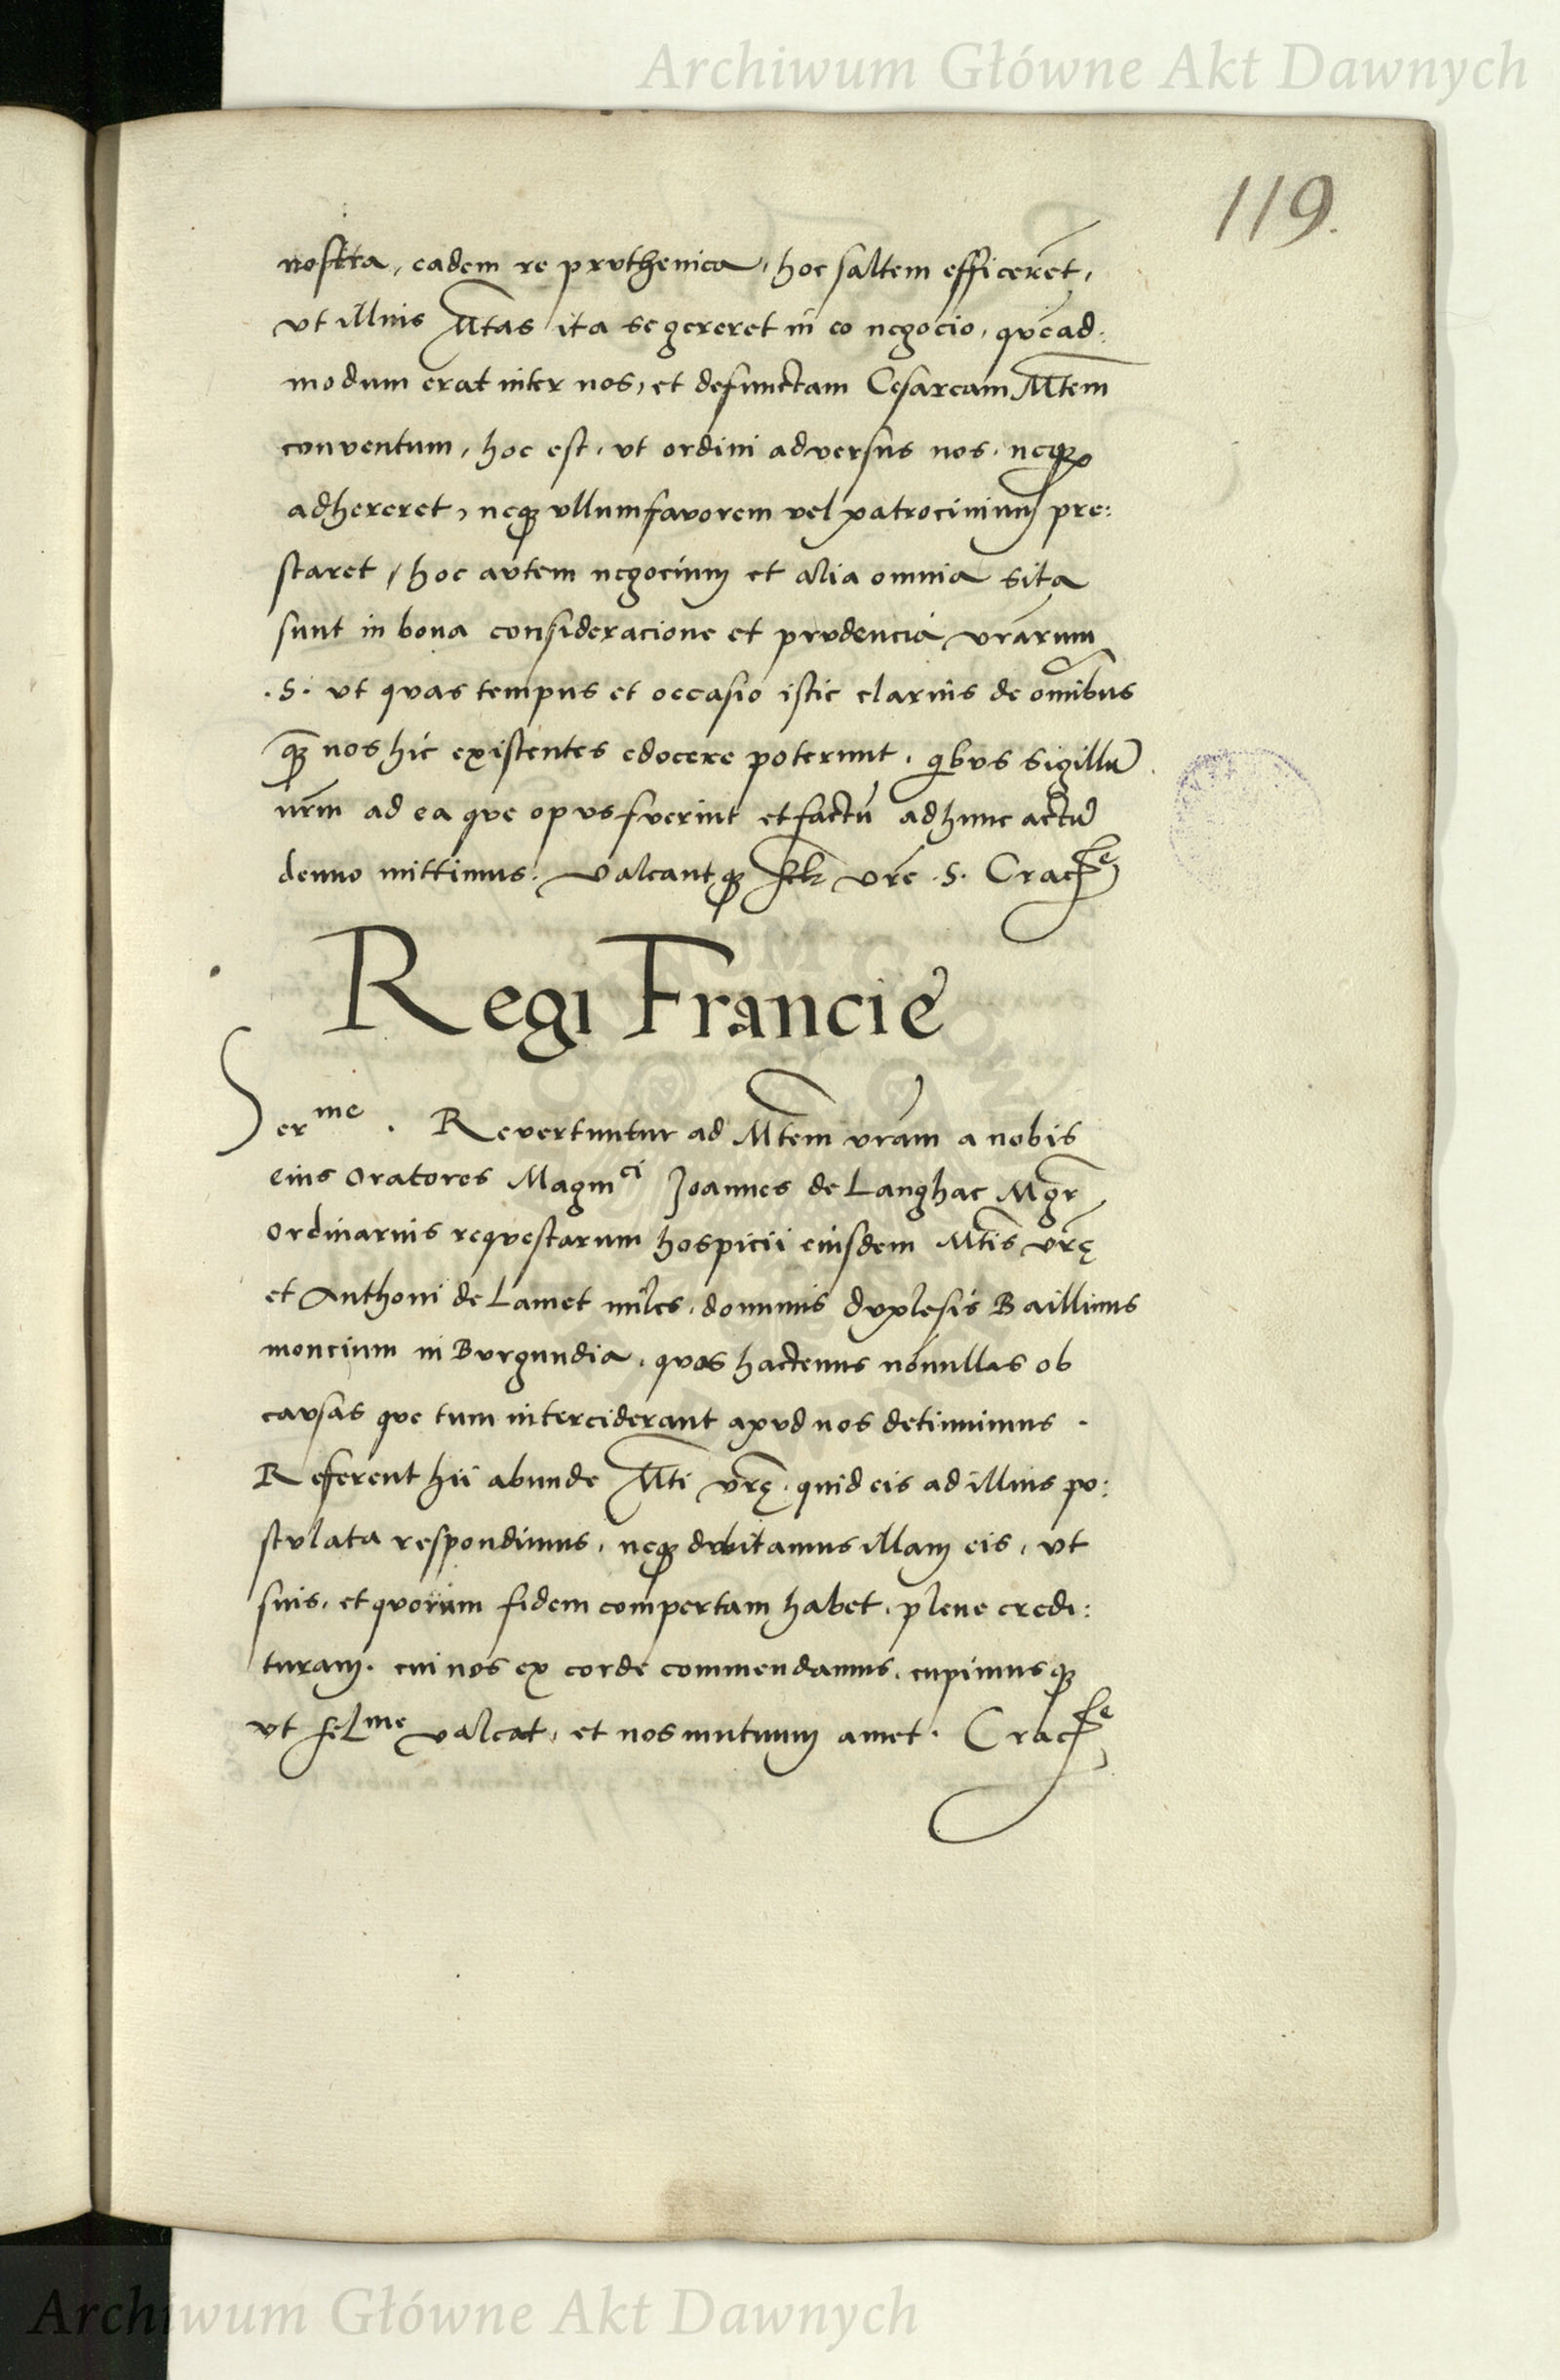 Archiwum Główne Akt Dawnych
119.
nostra, eadem re pruthenica, hoc saltem efficeret,
vt illius Mtas ita se gereret in eo negocio, quead:
modum erat inter nos, et defunctam Cesaream Mtem
conventum, hoc est, vt ordini adversus nos, neq;
adhereret, neq; vllum favorem vel patrocinium pre:
staret, hoc avtem negocium et alia omnia sita
sunt in bona consideracione et prvdencia vrarum
.S. vt qvas tempus et occasio istic clarius de omibus
q; nos hic existentes edocere poterunt, qbvs sigillu
nrm ad ea qve opvs fverint et factu ad hunc actu
denuo mittimus. valeantq; vre .S. Crac
Regi Francie
Serme. Revertuntur ad Mtem vram a nobis
eius oratores Magnci Joannes de Langhac Mgr
ordinarius reqvestarum hospicii eiusdem Mtis vrę
et Anthoni de Lamet miles, dominus dvplesis Baillivus
moncium in Bvrgundia, qvos hactenus nonullas ob
cavsas qve tum interciderant apvd nos detinuimus.
Referent hii abunde Mti vrę, quid eis ad illius po:
stvlata respondimus, neq; dvbitamus illam eis, vt
suis, et qvorum fidem compertam habet, plene credi:
turam. cui nos ex corde commendamus, cupimusq;
vt felme valeat, et nos mutuum amet. Crac
Archiwum Główne Akt Dawnych